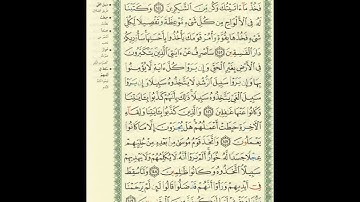 فَخُذْ مَآ ءَاتَيْتُكَ وَكُن مِّنَ ٱلشَّٰكِرِينَ ١٤٤ وَكَتَبْنَا
لَهُۥ فِى ٱلْأَلْوَاحِ مِن كُلِّ شَىْءٍ مَّوْعِظَةً وَتَفْصِيلًا لِّكُلِّ
شَىْءٍ فَخُذْهَا بِقُوَّةٍ وَأْمُرْ قَوْمَكَ يَأْخُذُوا۟ بِأَحْسَنِهَا سَأُو۟رِيكُمْ
دَارَ ٱلْفَٰسِقِينَ ١٤٥ سَأَصْرِفُ عَنْ ءَايَٰتِىَ ٱلَّذِينَ يَتَكَبَّرُونَ
فِى ٱلْأَرْضِ بِغَيْرِ ٱلْحَقِّ وَإِن يَرَوْا۟ كُلَّ ءَايَةٍ لَّا يُؤْمِنُوا۟
بِهَا وَإِن يَرَوْا۟ سَبِيلَ ٱلرُّشْدِ لَا يَتَّخِذُوهُ سَبِيلًا وَإِن يَرَوْا۟
سَبِيلَ ٱلْغَىِّ يَتَّخِذُوهُ سَبِيلًا ذَٰلِكَ بِأَنَّهُمْ كَذَّبُوا۟ بِـَٔايَٰتِنَا
وَكَانُوا۟ عَنْهَا غَٰفِلِينَ ١٤٦ وَٱلَّذِينَ كَذَّبُوا۟ بِـَٔايَٰتِنَا وَلِقَآءِ
ٱلْءَاخِرَةِ حَبِطَتْ أَعْمَٰلُهُمْ هَلْ يُجْزَوْنَ إِلَّا مَا كَانُوا۟
يَعْمَلُونَ ١٤٧ وَٱتَّخَذَ قَوْمُ مُوسَىٰ مِنۢ بَعْدِهِۦ مِنْ حُلِيِّهِمْ
عِجْلًا جَسَدًا لَّهُۥ خُوَارٌ أَلَمْ يَرَوْا۟ أَنَّهُۥ لَا يُكَلِّمُهُمْ وَلَا يَهْدِيهِمْ
سَبِيلًا ٱتَّخَذُوهُ وَكَانُوا۟ ظَٰلِمِينَ ١٤٨ وَلَمَّا سُقِطَ
فِىٓ أَيْدِيهِمْ وَرَأَوْا۟ أَنَّهُمْ قَدْ ضَلُّوا۟ قَالُوا۟ لَئِن لَّمْ يَرْحَمْنَا